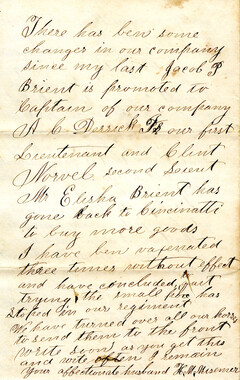 There has ben some
changes in our company
since my last Jacob P
Brient is promoted to
Captain of our company
A C Derrick is our first
Lieutenant and Clint
Norvel second Lieut
Mr Elisha Brient has
gone back to Cincinatti
to buy more goods
I have ben vaxenated
three times without effect
and have concluded, quit
trying the small pox has
stoped in our regiment
We have turned over all our horses
to send them to the front
write soon as you get this
and write often I remain
Your affectionate husband H M Misemer